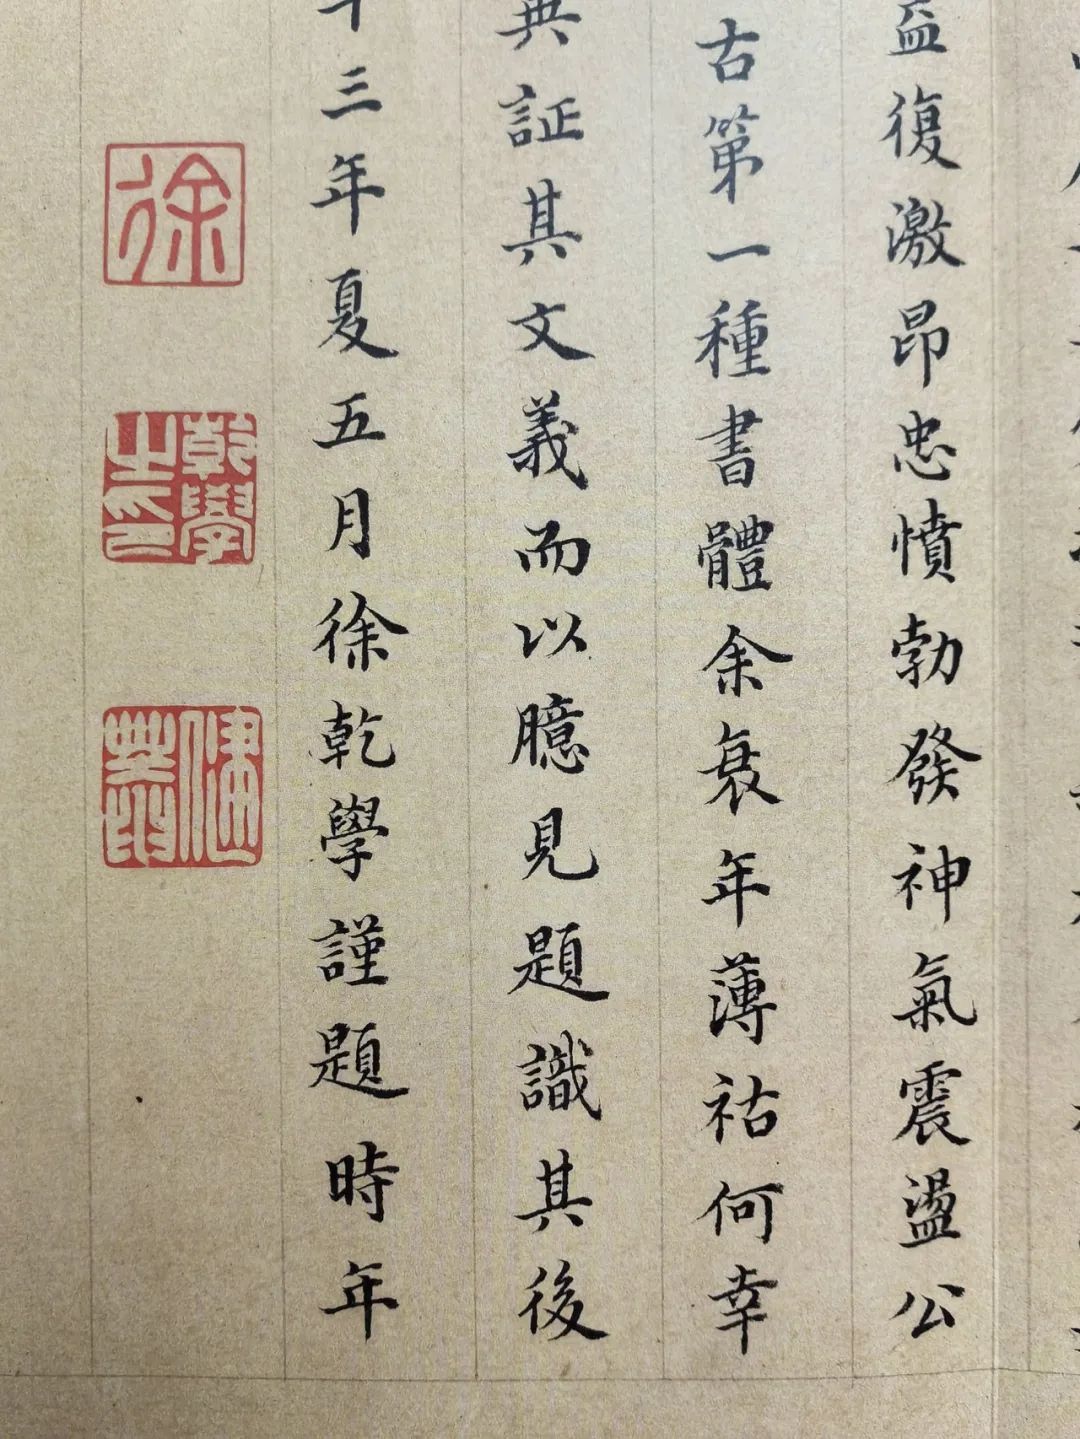 益復激昂忠憤勃發神氣震盪公
古第一種書體余衰年薄祜何幸
典証其文義而以臆見題識其後
十三年夏五月徐乾學謹題時年
徐
乾學之印
健菴